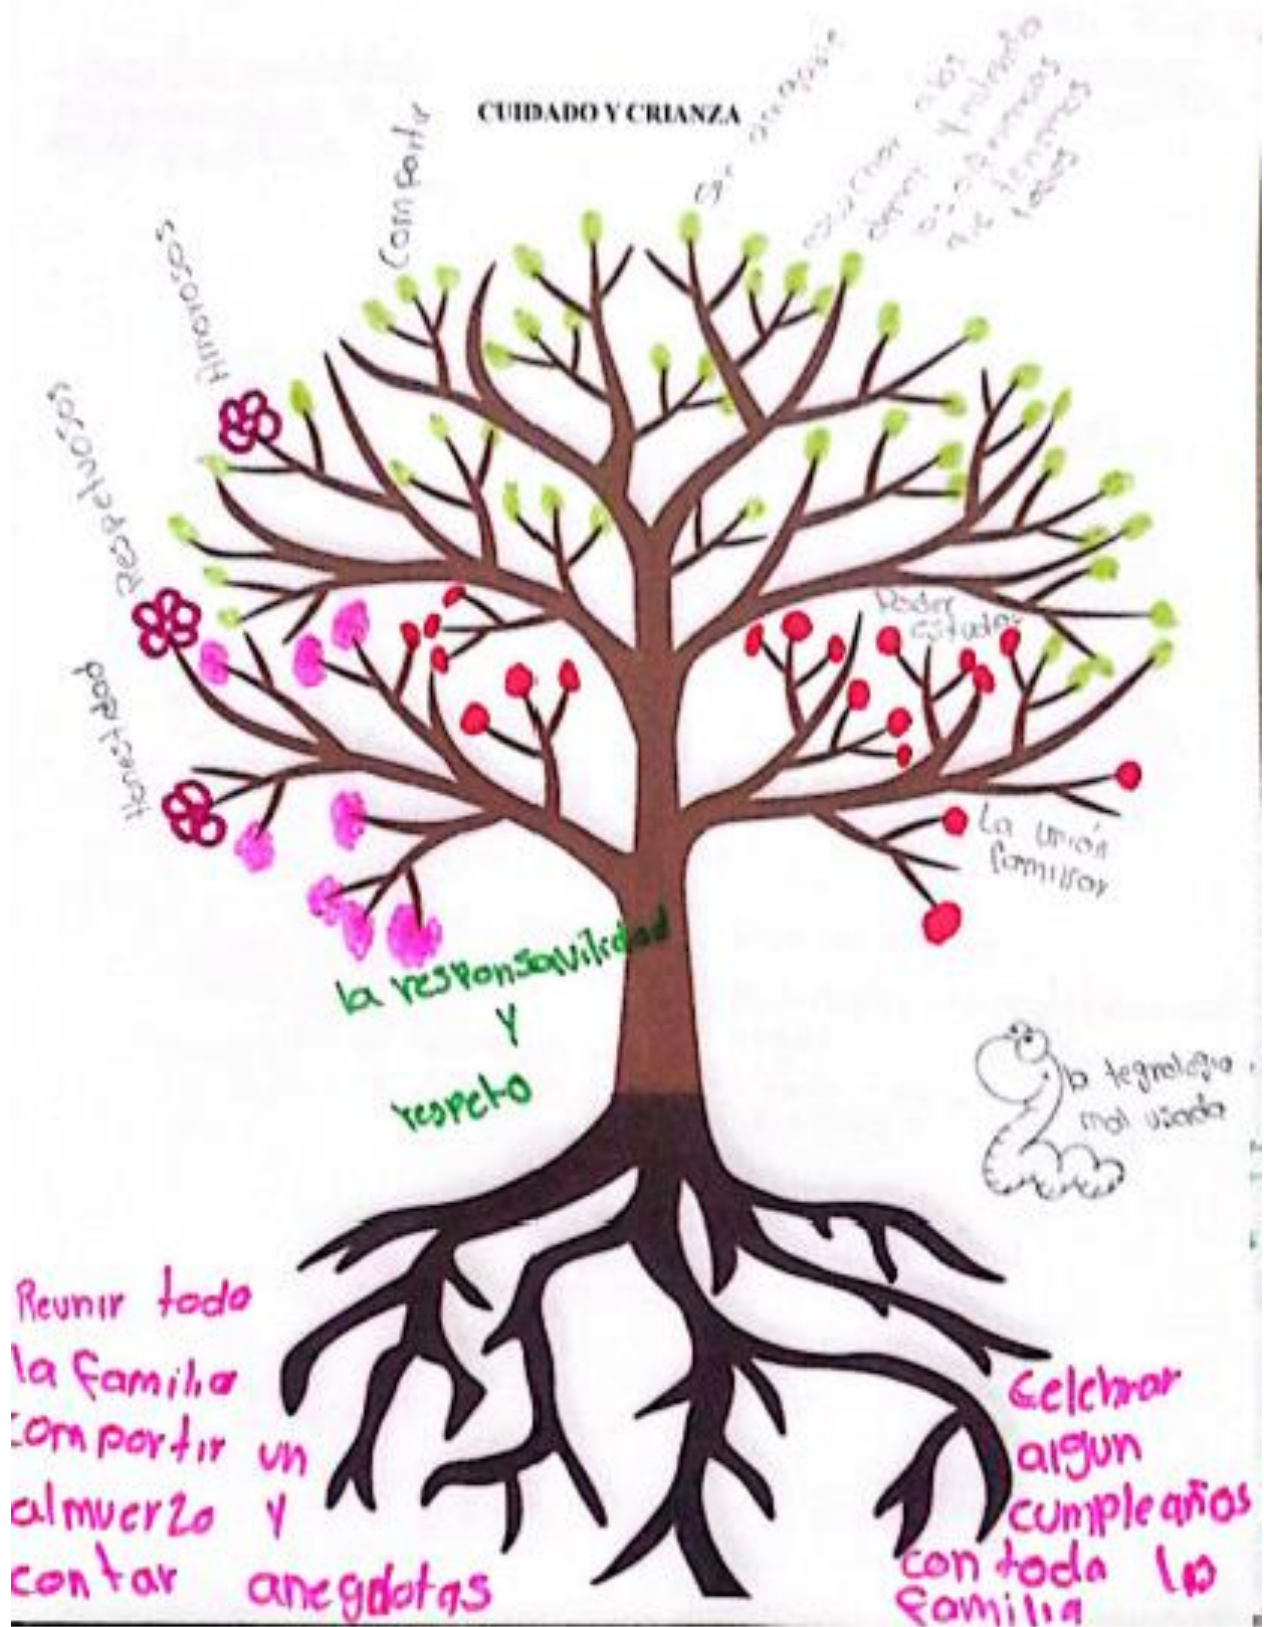 CUIDADO Y CRIANZA
Compartir
Amorosos
Respetuosos
Honestidad
escuchar a los
demas
que tenemos
todos
Poder
estudiar
La unión
familiar
la responsavilidad
y
respeto
la tegnologia
mal usada
Reunir toda
la familia
compartir un
almuerzo y
contar anegdotas
Celebrar
algun
cumpleaños
con toda la
familia